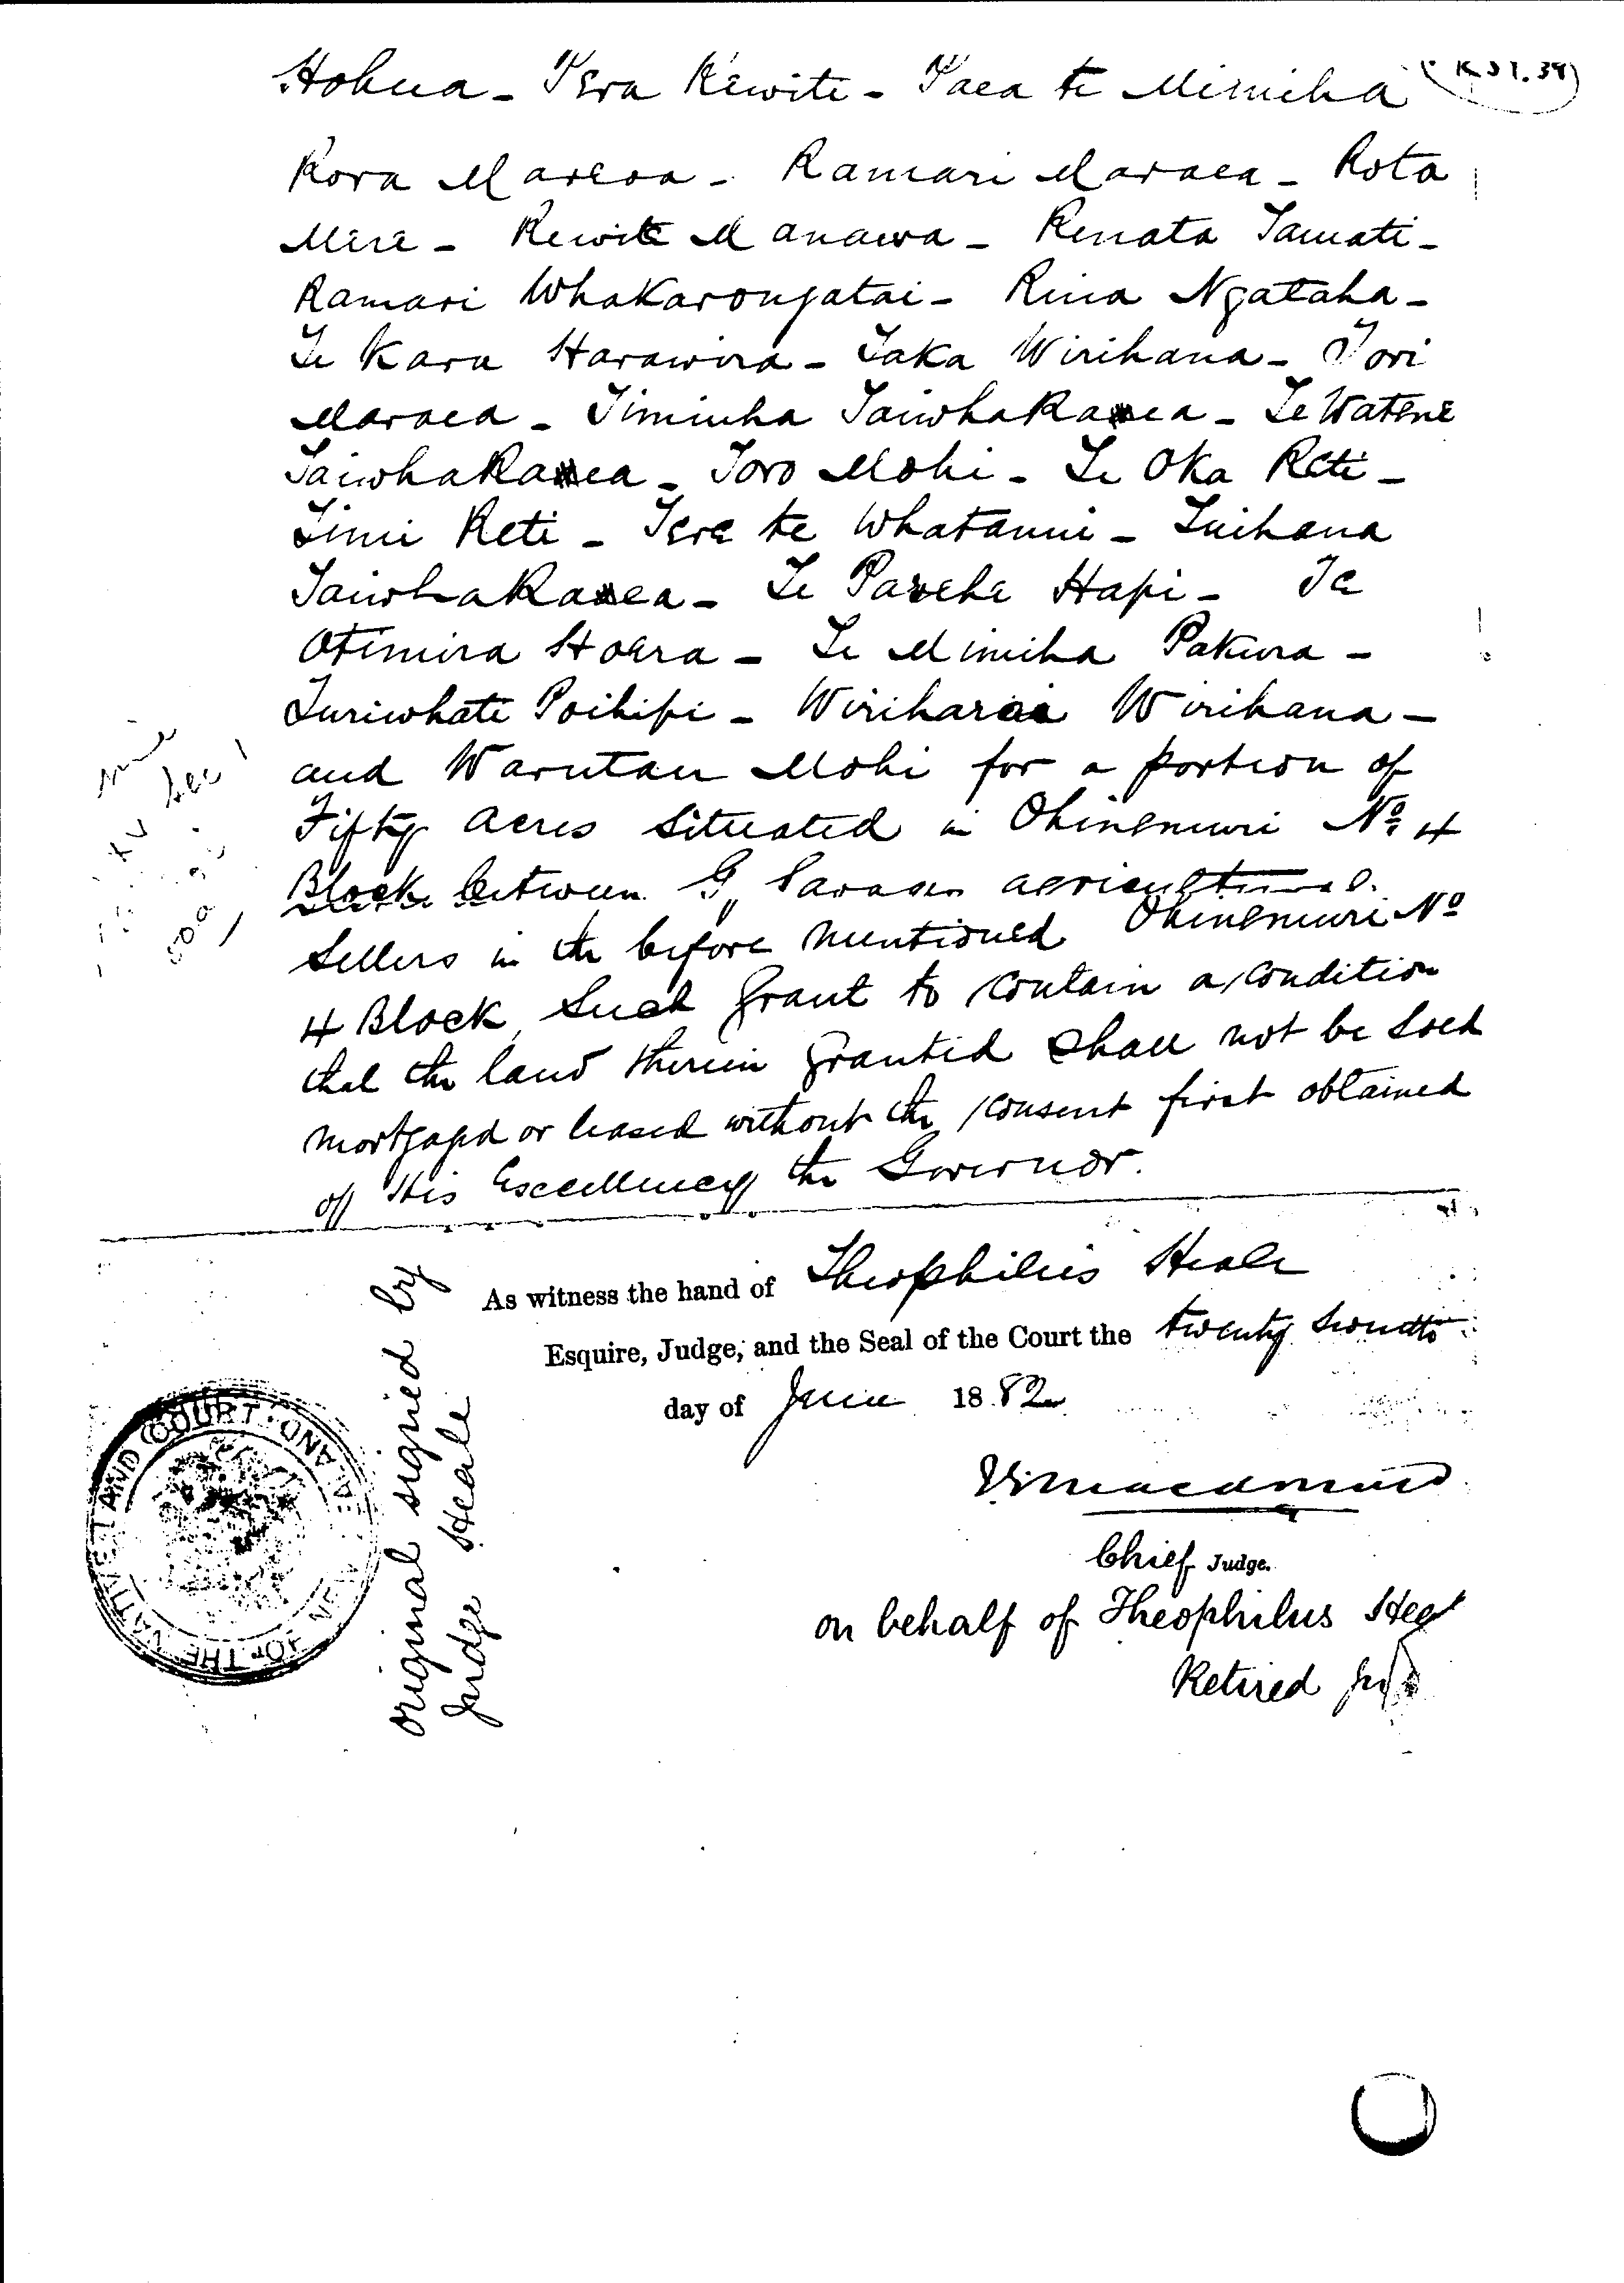 Hohua - Tera Rewite - Taea te Mimiha
Kora Mareoa - Ramari Maraea - Rota
Mere - Rewite Manawa - Renata Tamati -
Ramari Whakarongatai - Rina Ngataha -
Te Karu Harawira - Taka Wirihana - Tori
Maraea - Timiuha Taiwhakaaea - Te Watene
Taiwhakaaea - Toro Mohi - Te Oka Reti -
Timi Reti - Tere te Whatanui - Tuihana
Taiwhakaaea - Te Pareha Hapi - Te
Otimira Hoera - Te Mimiha Pakura -
Turiwhati Poihipi - Wiriharai Wirihana -
and Warutau Mohi for a portion of
Fifty acres situated in Ohinemuri No. 4
Block between G agricultural
sellers in the before mentioned Ohinemuri No
4 Block, such grant to contain a condition
that the land therein granted shall not be sold
mortgaged or leased without the consent first obtained
of His Excellency the Governor.
As witness the hand of Theophilus Heale
Esquire, Judge, and the Seal of the Court the twenty second
day of June 1882
Chief Judge.
on behalf of Theophilus Heale
Retired
original signed by
Judge Heale
OF THE NATIVE LAND COURT NEW ZEALAND